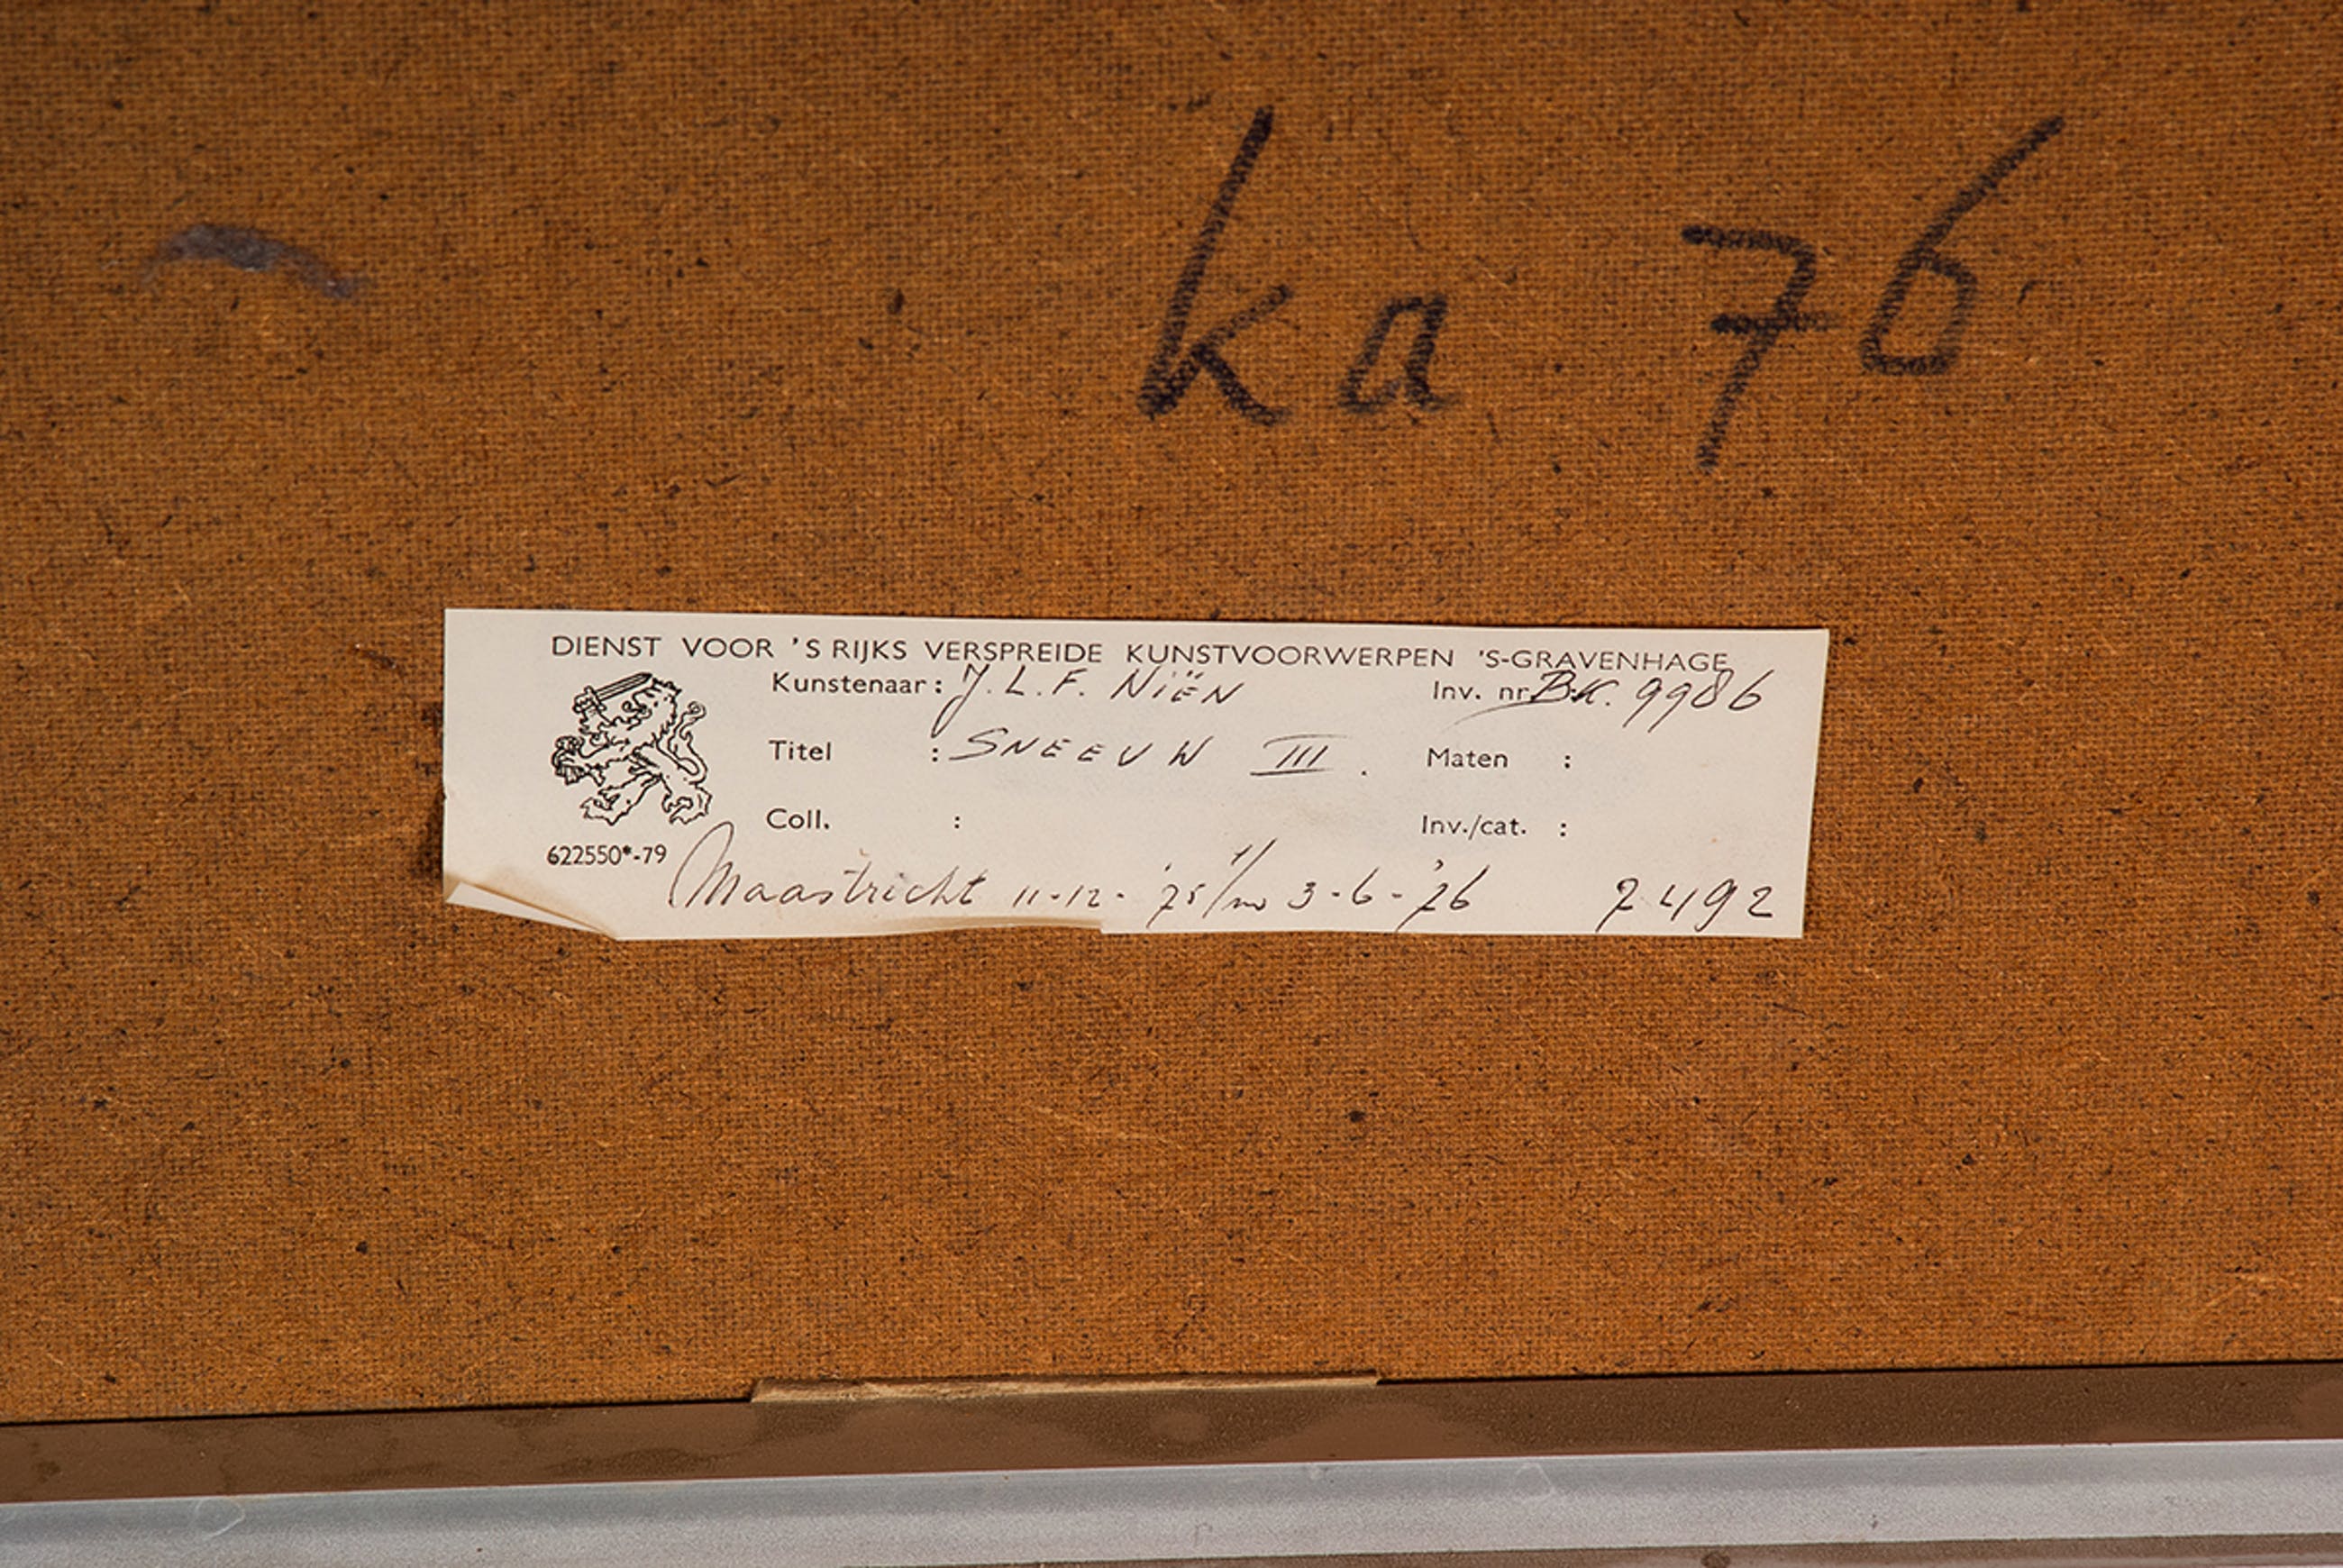 ka 76
DIENST VOOR 'S RIJKS VERSPREIDE KUNSTVOORWERPEN 'S-GRAVENHAGE
Kunstenaar: J. L. F. NIËN Inv. nr. BK. 9986
Titel : SNEEUW III. Maten :
Coll. : Inv./cat. :
622550*-79
Maastricht 11-12-'75 t/m 3-6-'76 7492